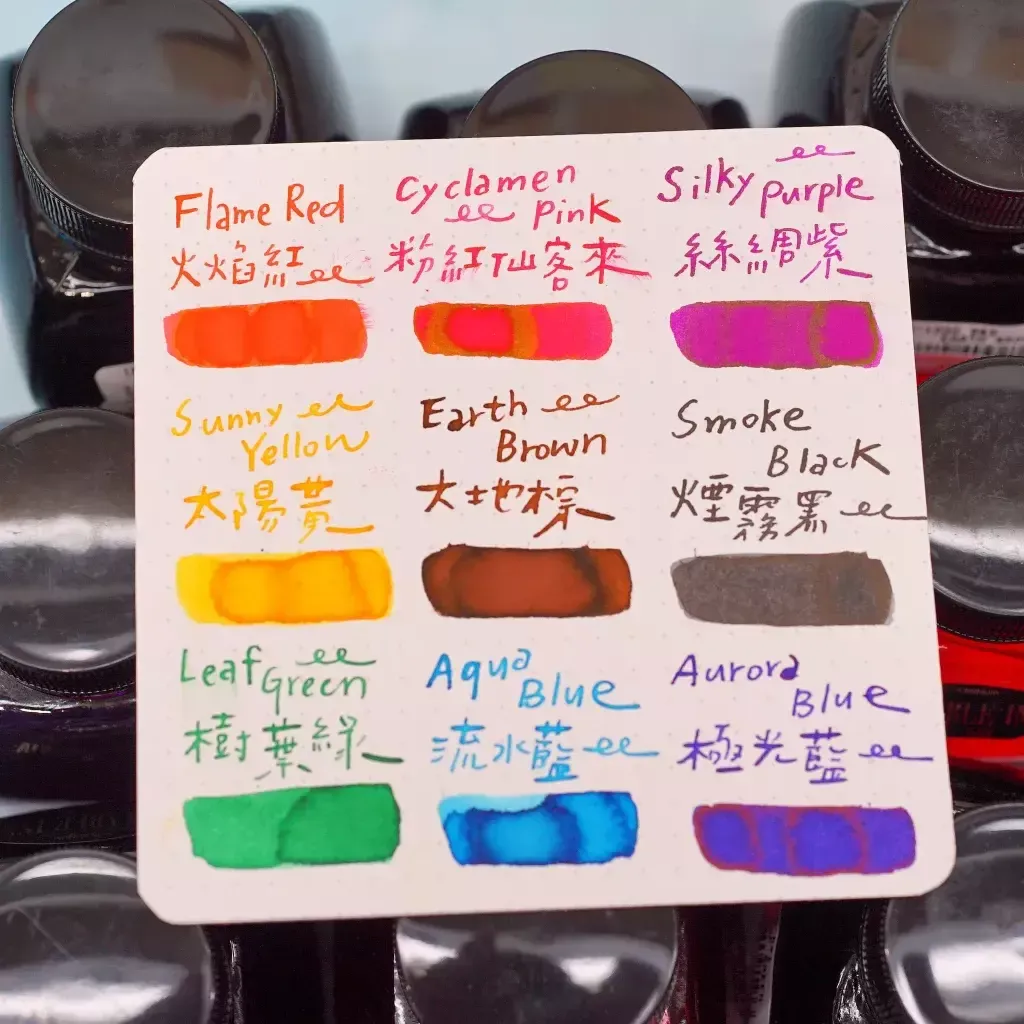 Flame Red
火焰紅
Cyclamen
Pink
粉紅仙客來
Silky
purple
絲綢紫
Sunny
Yellow
太陽黃
Earth
Brown
大地棕
Smoke
Black
煙霧黑
Leaf
Green
樹葉綠
Aqua
Blue
流水藍
Aurora
Blue
極光藍